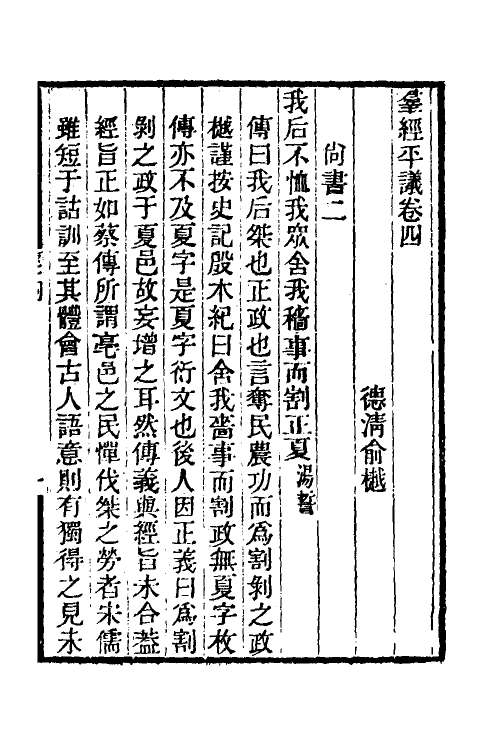 羣經平議卷四
德淸俞樾
尙書二
我后不恤我眾舍我穡事而割正夏湯誓
傳曰我后桀也正政也言奪民農功而爲割剝之政
樾謹按史記殷本紀曰舍我嗇事而割政無夏字枚
傳亦不及夏字是夏字衍文也後人因正義曰爲割
剝之政于夏邑故妄增之耳然傳義與經旨未合葢
經旨正如蔡傳所謂亳邑之民憚伐桀之勞者宋儒
雖短于詁訓至其體會古人語意則有獨得之見未